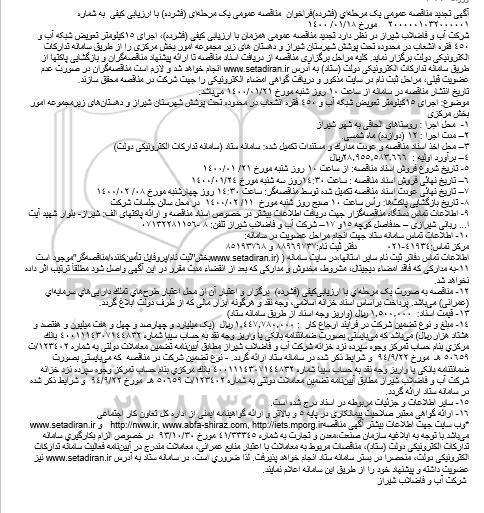 آگهی تجدید مناقصه عمومی یک مرحله‌ای (فشرده)فراخوان مناقصه عمومی یک مرحله‌ای (فشرده) با ارزیابی کیفی به شماره
۲۰۰۰۰۰۱۰۳۲۰۰۰۰۰۱ مورخ ۱۴۰۰/۰۱/۱۸
شرکت آب و فاضلاب شیراز در نظر دارد تجدید مناقصه عمومی همزمان با ارزیابی کیفی (فشرده)، اجرای ۱۵کیلومتر تعویض شبکه آب و
۴۵۰ فقره انشعاب در محدوده تحت پوشش شهرستان شیراز و دهستان های زیر مجموعه امور بخش مرکزی را از طریق سامانه تدارکات
الکترونیکی دولت برگزار نماید. کلیه مراحل برگزاری مناقصه از دریافت اسناد مناقصه تا ارائه پیشنهاد مناقصه‌گران و بازگشایی پاکتها از
طریق سامانه تدارکات الکترونیکی دولت (ستاد) به آدرس www.setadiran.ir انجام خواهد شد و لازم است مناقصه‌گران در صورت عدم
عضویت قبلی، مراحل ثبت نام در سایت مذکور و دریافت گواهی امضاء الکترونیکی را جهت شرکت در مناقصه محقق سازند.
تاریخ انتشار مناقصه در سامانه از ساعت ۱۰ روز شنبه مورخ ۱۴۰۰/۰۱/۲۱ می‌باشد.
موضوع: اجرای ۱۵کیلومتر تعویض شبکه آب و ۴۵۰ فقره انشعاب در محدوده تحت پوشش شهرستان شیراز و دهستان‌های زیرمجموعه امور
بخش مرکزی
۱- محل اجرا : روستاهای الحاقی به شهر شیراز
۲- مدت اجرا : ۱۲ (دوازده) ماه شمسی.
۳- محل اخذ اسناد مناقصه و عودت مدارک و مستندات تکمیل شده: سامانه ستاد (سامانه تدارکات الکترونیکی دولت)
۴- برآورد اولیه : ۲۸,۹۵۵,۵۸۳,۶۶۶ریال
۵- تاریخ شروع فروش اسناد مناقصه: از ساعت ۱۰ روز شنبه مورخ ۱۴۰۰/۰۱/۲۱
۶- تاریخ نهائی فروش اسناد مناقصه : ساعت ۱۴:۳۰روز سه شنبه مورخ ۱۴۰۰/۰۱/۲۴
۷- تاریخ نهائی عودت اسناد مناقصه تکمیل شده توسط مناقصه‌گر: ساعت ۱۴:۳۰ روز چهارشنبه مورخ ۱۴۰۰/۰۲/۰۸
۸- تاریخ بازگشایی پاکت‌ها: رأس ساعت ۱۰ صبح روز شنبه مورخ ۱۴۰۰/۰۲/۱۱ در محل سالن جلسات شرکت
۹- اطلاعات تماس دستگاه مناقصه‌گزار جهت دریافت اطلاعات بیشتر در خصوص اسناد مناقصه و ارائه پاکتهای الف: شیراز- بلوار شهید آیت
ا... ربانی شیرازی – حدفاصل کوچه ۱۵و ۱۷– شرکت آب و فاضلاب شیراز تلفن: ۸-۰۷۱۳۲۲۸۱۱۵۶
۱۰- اطلاعات تماس سامانه ستاد جهت انجام مراحل عضویت در سامانه:
مرکز تماس:۴۱۹۳۴-۰۲۱ دفتر ثبت نام:۸۸۹۶۹۷۳۷ و ۸۵۱۹۳۷۶۸
اطلاعات تماس دفاتر ثبت نام سایر استانها،در سایت سامانه (www.setadiran.ir)بخش"ثبت نام/پروفایل تأمین‌کننده/مناقصه‌گر"موجود است
۱۱-به مدارکی که فاقد امضاء دیجیتال، مشروط، مخدوش و مدارکی که بعد از انقضاء مدت مقرر در این آگهی واصل شود مطلقاً ترتیب اثر داده
نخواهد شد.
۱۲- مناقصه به صورت یک مرحله‌ای با ارزیابی‌کیفی (فشرده) برگزار و اعتبار آن از محل اعتبار طرح‌های تملک دارایی‌های سرمایه‌ای
(عمرانی) می‌باشد. پرداخت براساس اسناد خزانه اسلامی، وجه نقد و هرگونه ابزار مالی که از طرف دولت ابلاغ گردد.
۱۳- قیمت اسناد: ۱,۵۰۰,۰۰۰ ریال (واریز وجه اسناد از طریق سامانه ستاد)
۱۴- مبلغ و نوع تضمین شرکت در فرآیند ارجاع کار : ۱,۴۴۷,۷۸۰,۰۰۰ ریال (یک میلیارد و چهارصد و چهل و هفت میلیون و هفتصد و
هشتاد هزار ریال) می‌باشد که می‌بایستی بصورت ضمانتنامه بانکی یا واریز وجه نقد به حساب سیبا شماره ۴۰۰۱۱۱۴۳۰۷۱۴۴۸۳۲ بانک
مرکزی بنام حساب تمرکز وجوه سپرده نزد خزانه شرکت آب و فاضلاب شیراز مطابق آیین‌نامه تضمین معاملات دولتی به شماره ۱۲۳۴۰۲/ت
۵۰۶۵۹ هـ مورخ ۹۴/۹/۲۲ و شرایط ذکر شده در سامانه ستاد ارائه گردد. - نوع تضمین شرکت در مناقصه که می‌بایستی بصورت
ضمانتنامه بانکی یا واریز وجه نقد به حساب سیبا شماره ۴۰۰۱۱۱۴۳۰۷۱۴۴۸۳۲ بانک مرکزی بنام حساب تمرکز وجوه سپرده نزد خزانه
شرکت آب و فاضلاب شیراز مطابق آیین‌نامه تضمین معاملات دولتی به شماره ۱۲۳۴۰۲/ت ۵۰۶۵۹ هـ مورخ ۹۴/۹/۲۲ و شرایط ذکر شده
در سامانه ستاد ارائه گردد.
۱۵- سایر اطلاعات و جزئیات مربوطه در اسناد درج شده است.
۱۶- ارائه گواهی معتبر صلاحیت پیمانکاری در پایه ۵ و بالاتر و ارائه گواهینامه ایمنی از اداره کل تعاون کار اجتماعی
*وب سایت جهت اطلاعات بیشتر آگهی مناقصه http://nww.ir, www.abfa-shiraz.com, http://iets.mporg.ir و www.setadiran.ir
می‌باشد.با توجه به ابلاغیه سازمان صنعت،معدن و تجارت به شماره ۴۱/۳۳۴۴۵ مورخ ۹۳/۱۰/۳۰ در خصوص الزام بکارگیری سامانه
تدارکات الکترونیکی دولت (ستاد)، مناقصات مربوط به معاملات با اعتبار منابع عمرانی، معاملات مندرج در آیین‌نامه فعالیت سامانه تدارکات
الکترونیکی دولت، منحصراً در بستر سامانه ستاد انجام خواهد پذیرفت. لذا ضروری است، در سامانه ستاد به آدرس www.setadiran.ir نیز
عضویت داشته و پیشنهاد خود را از طریق این سامانه اعلام نمایند.
شرکت آب و فاضلاب شیراز